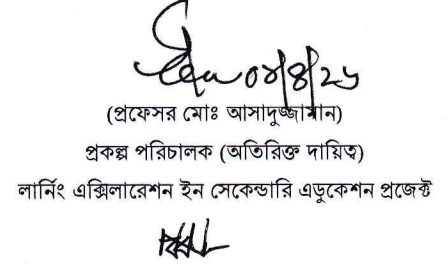 (প্রফেসর মোঃ আসাদুজ্জামান)
প্রকল্প পরিচালক (অতিরিক্ত দায়িত্ব)
লার্নিং এক্সিলারেশন ইন সেকেন্ডারি এডুকেশন প্রজেক্ট